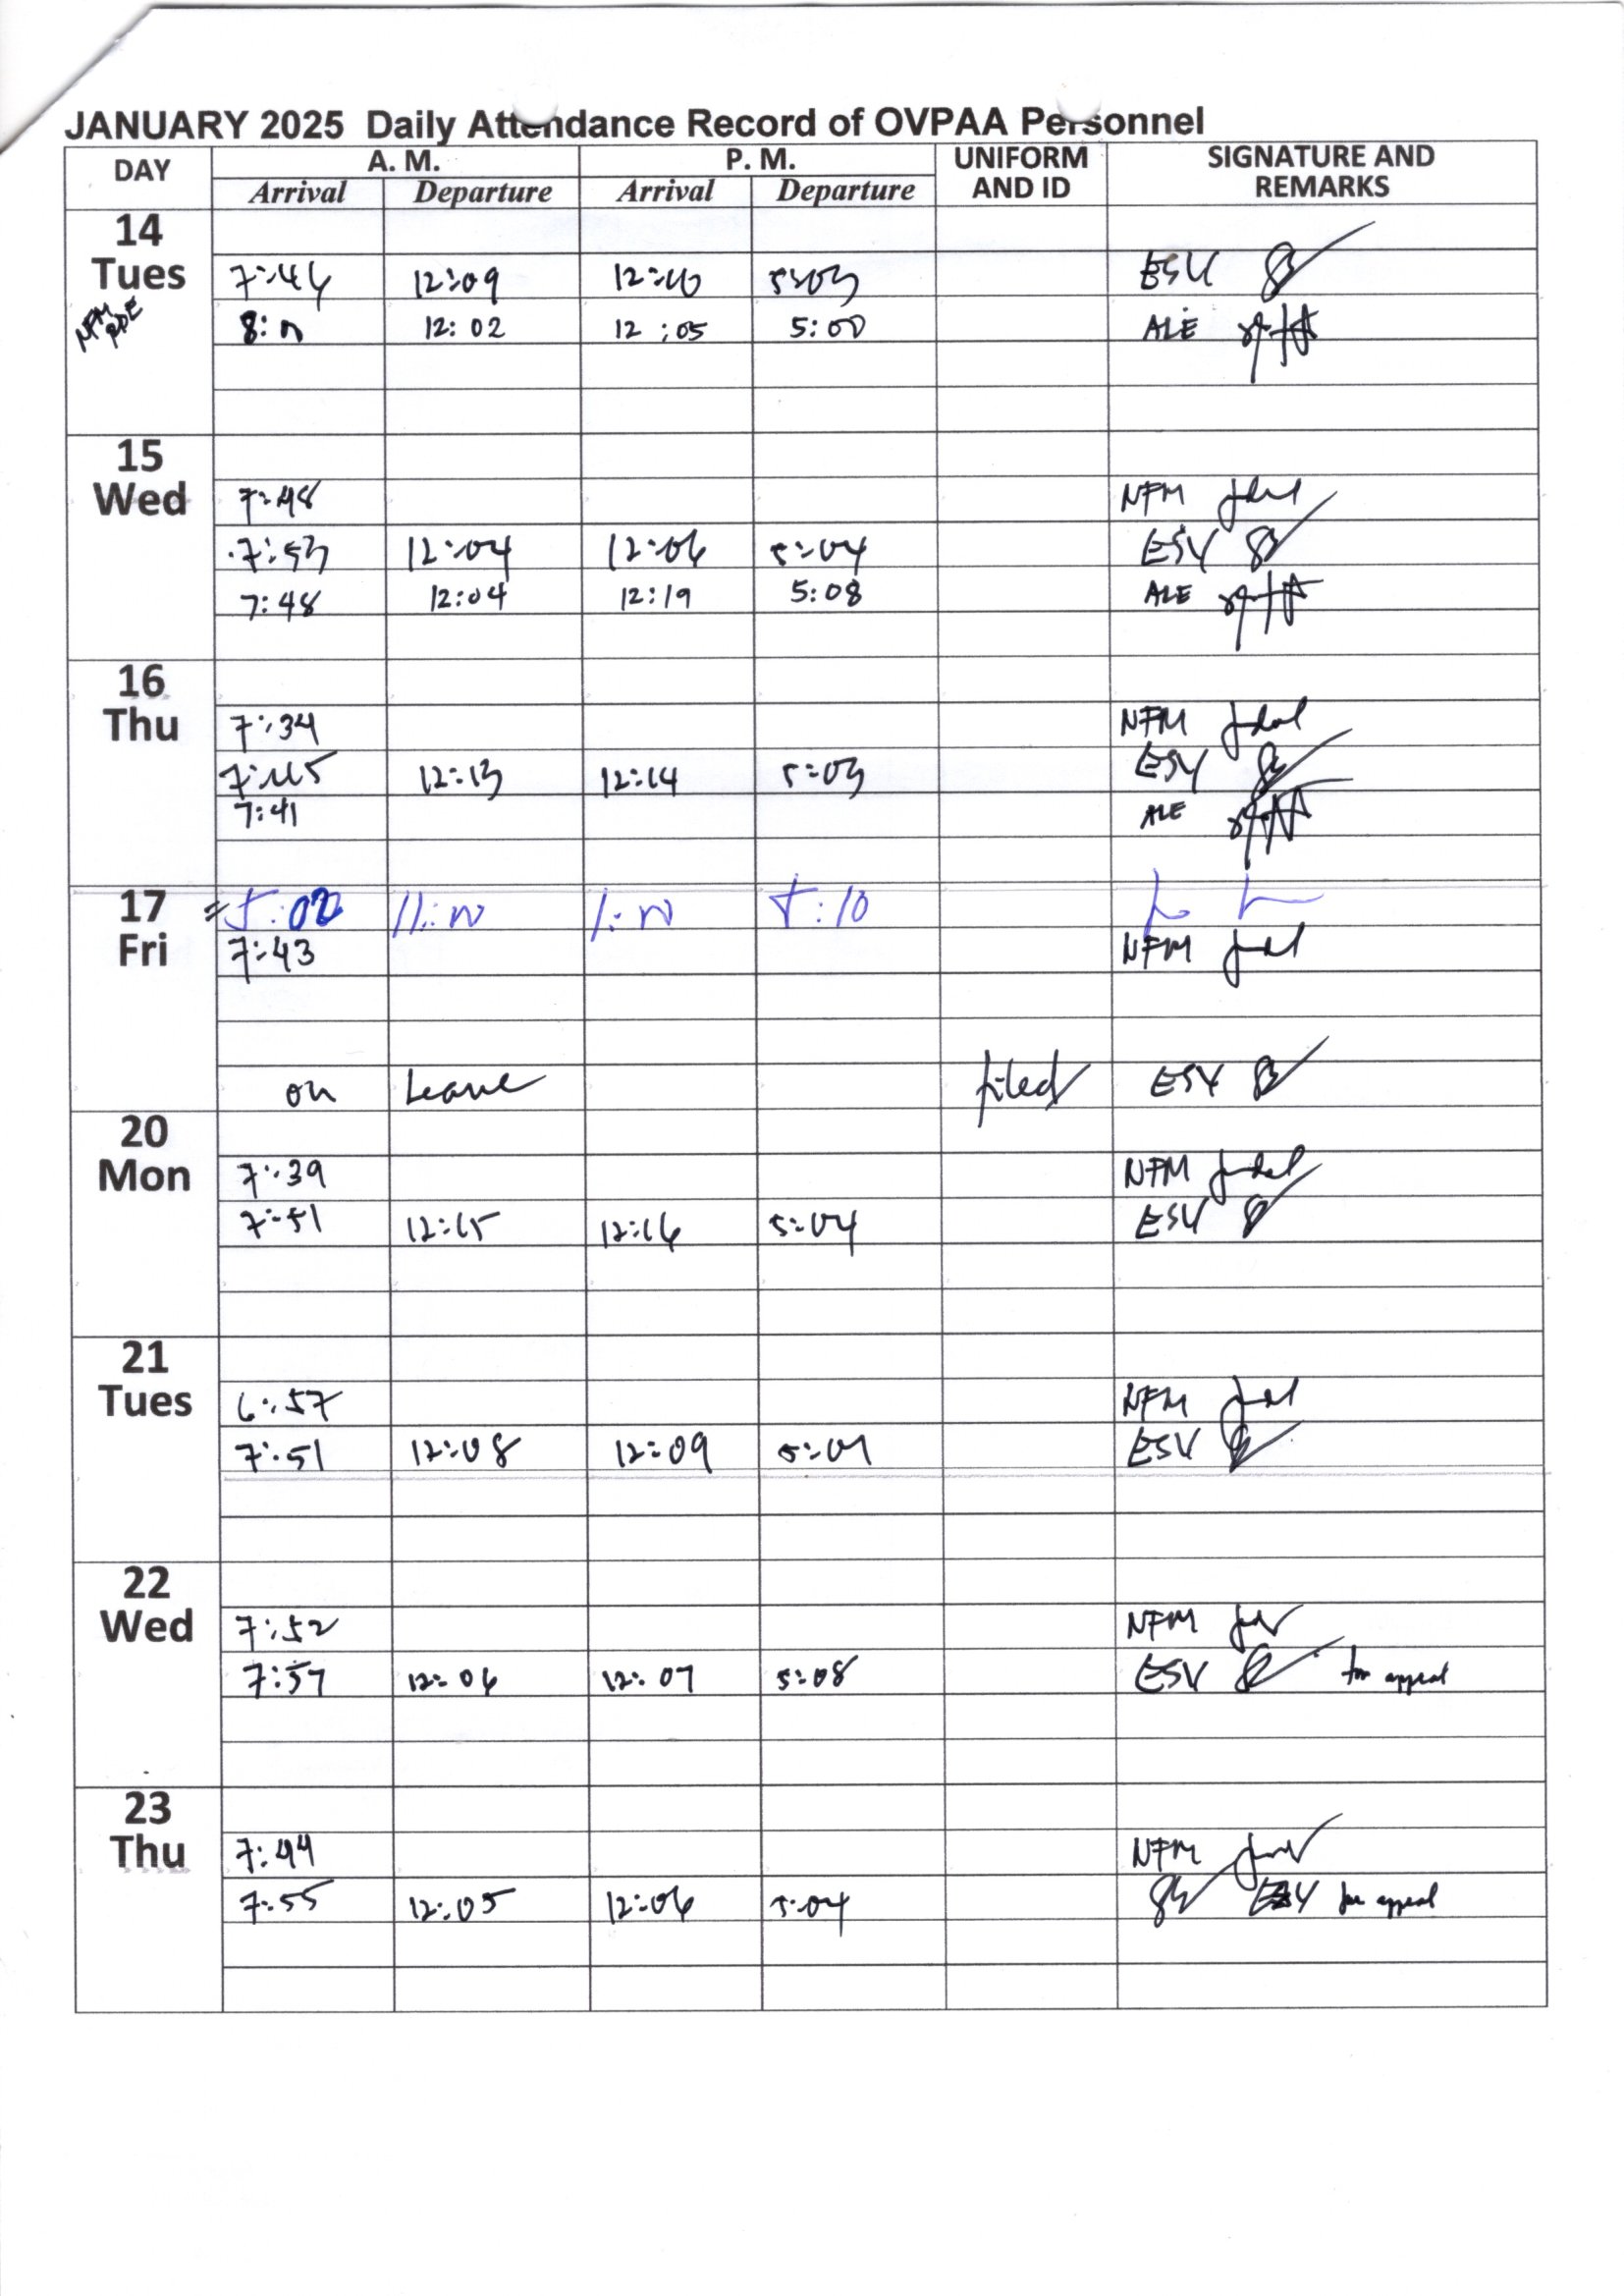 JANUARY 2025 Daily Attendance Record of OVPAA Personnel
DAY A. M. P. M. UNIFORM AND ID SIGNATURE AND REMARKS
Arrival Departure Arrival Departure
14
Tues
NFM
7:46 12:09 12:10 5:03 ESY
8:00 12:02 12:05 5:00 ALE
15
Wed
7:48 NFM
7:53 12:04 12:06 5:04 ESY
7:48 12:04 12:19 5:08 ALE
16
Thu
7:34 NFM
7:45 12:13 12:14 5:03 ESY
7:41 ALE
17
Fri
5:02 11:00 1:00 5:10
7:43 NFM
on Leave filed ESY
20
Mon
7:39 NFM
7:51 12:15 12:16 5:04 ESY
21
Tues
6:57 NFM
7:51 12:08 12:09 ESY
22
Wed
7:52 NFM
7:57 12:06 12:07 5:08 ESY for appeal
23
Thu
7:44 NFM
7:55 12:05 12:06 5:04 ESY for appeal